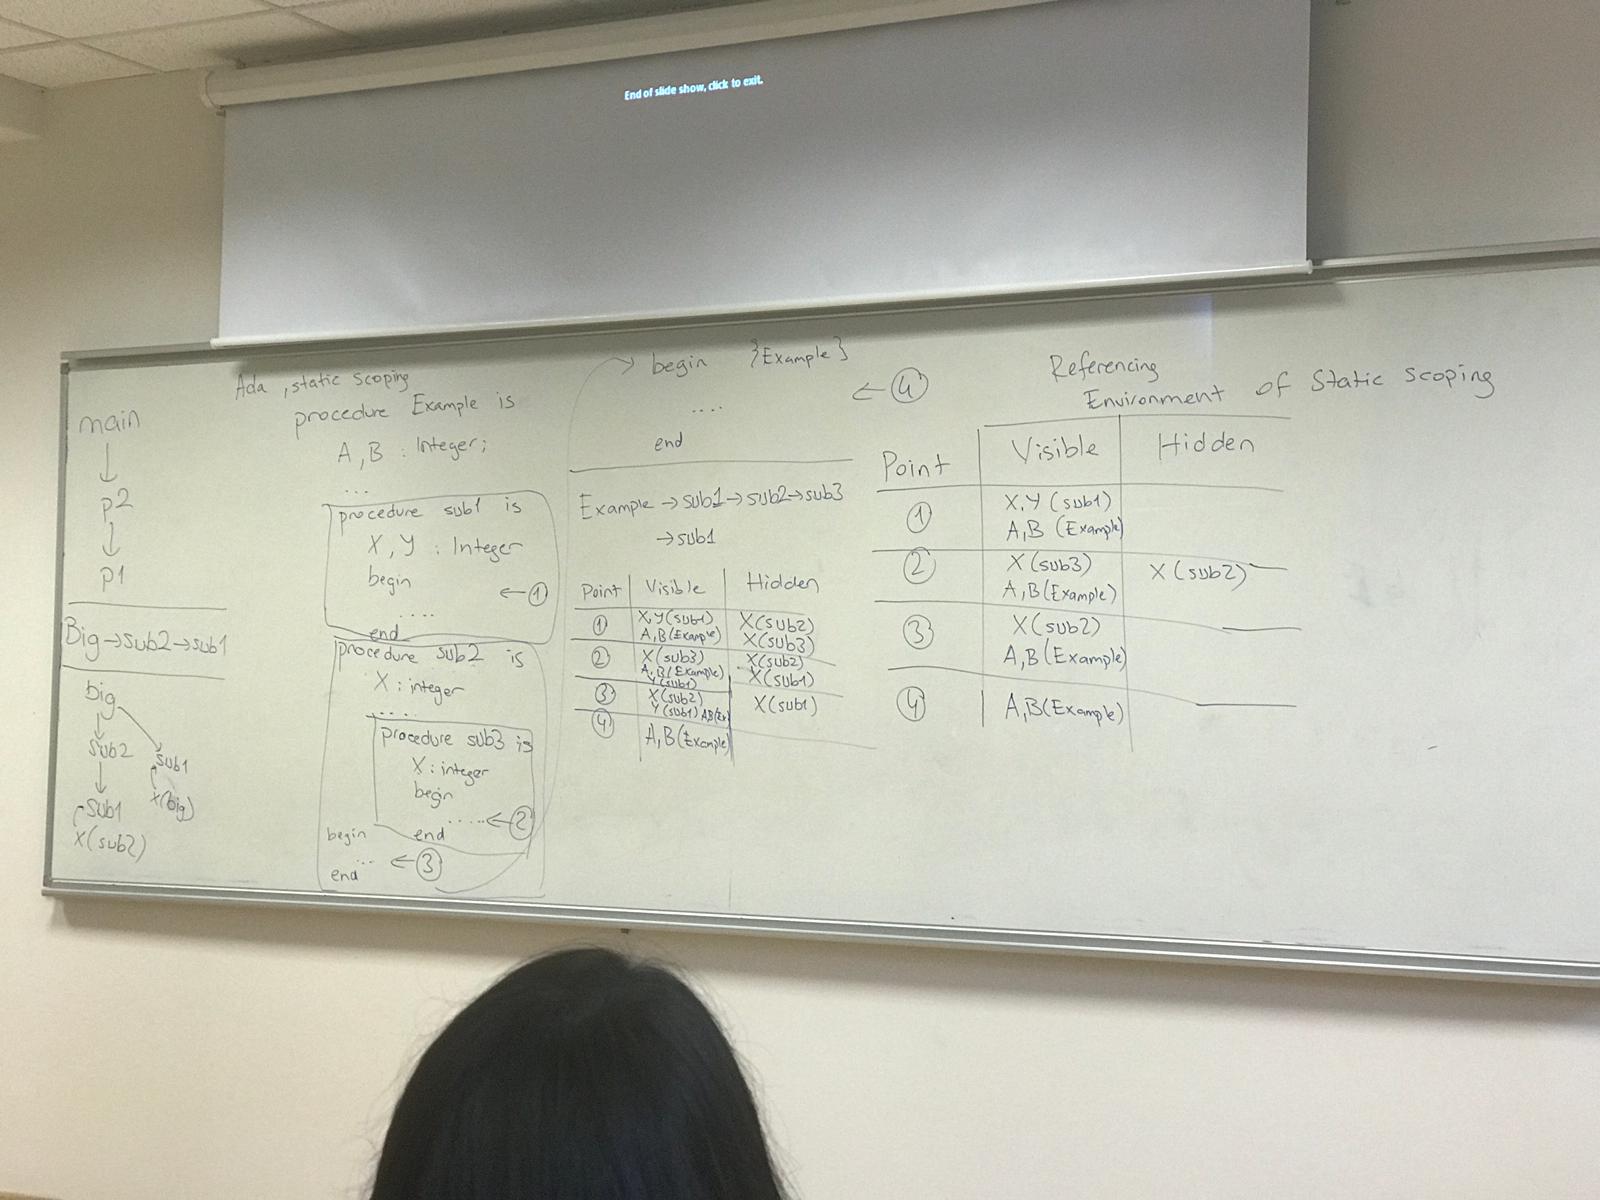 End of slide show, click to exit.
main
↓
p2
↓
p1
Big→sub2→sub1
big
sub2
sub1
sub1
x(big)
X(sub2)
Ada, static scoping
procedure Example is
A, B : Integer;
...
procedure sub1 is
X, Y : Integer
begin
←①
....
end
procedure sub2 is
X : integer
....
procedure sub3 is
X : integer
begin
.....←②
end
begin
... ←③
end
begin {Example}
←④
....
end
Example →sub1→sub2→sub3
→sub1
Point Visible Hidden
① X,Y(sub1) X(sub2)
A,B(Example) X(sub3)
② X(sub3) X(sub2)
A,B(Example) X(sub1)
Y(sub1)
③ X(sub2) X(sub1)
Y(sub1) AB(Ex)
④ A,B(Example)
Referencing
Environment of Static scoping
Point Visible Hidden
① X,Y (sub1)
A,B (Example)
② X(sub3) X(sub2)
A,B(Example)
③ X(sub2)
A,B(Example)
④ A,B(Example)